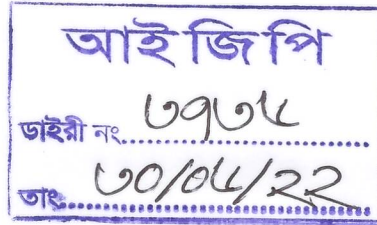 আই জি পি
ডাইরী নং. ৩৭৩৫
তাং. ৩০/০৫/২২